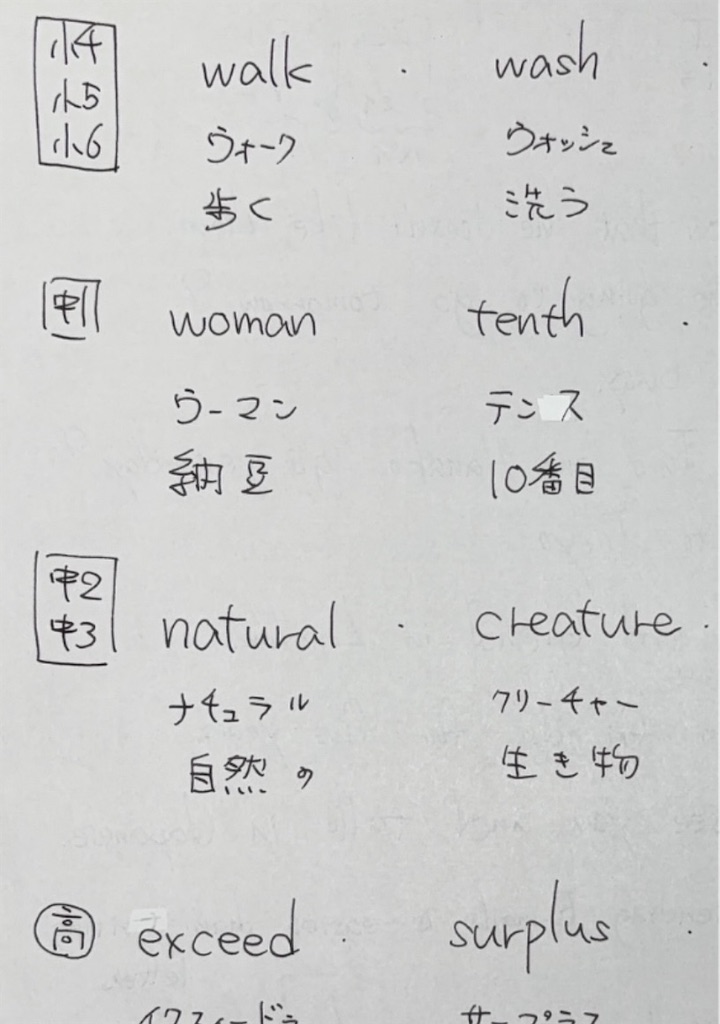 小4
小5
小6
walk . wash .
ウォーク ウォッシュ
歩く 洗う
中1
woman tenth .
ウーマン テンス
納豆 10番目
中2
中3
natural . creature .
ナチュラル クリーチャー
自然の 生き物
高
exceed . surplus .
サープラス